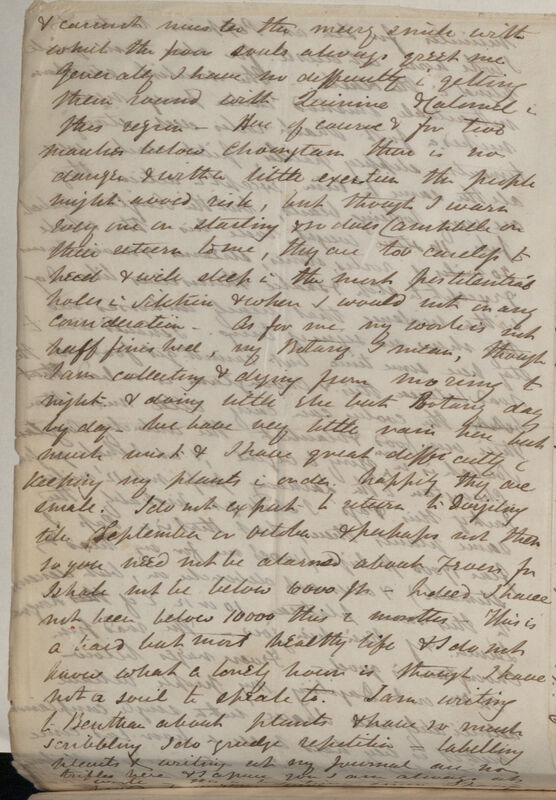 & cannot muster the merry smile with
which the poor souls always greet me.
Generally I have no difficulty i getting
them round with Quinine & Calomel i
this region – Here of course & for two
marches below Choongtam there is no
danger & with a little exertion the people
might avoid risk, but though I warn
every one on starting & so does Campbell on
their return to me, they are too careless to
heed & will sleep i the most pestilential
holes i Sikkim & where I would not on any
consideration – As for me my work is not
half finished, my Botany I mean, though
I am collecting & drying from morning to
night & doing little else but Botany day
by day. We have very little rain here but
much mist & I have great difficulty i
keeping my plants i order. happily they are
small. I do not expect to return to Dorjiling
till September or October & perhaps not then
so you need not be alarmed about Fevers for
I shall not be below 6000 ft – Indeed I have
not been below 10000 this 2 months – This is
a hard but most healthy life & I do not
know what a lonely hour is though I have
not a soul to speak to. I am writing
to Bentham about plants & have so much
scribbling I do grudge repetition – labelling
plants & writing up my Journal are no
trifles here & I assure you I am always at